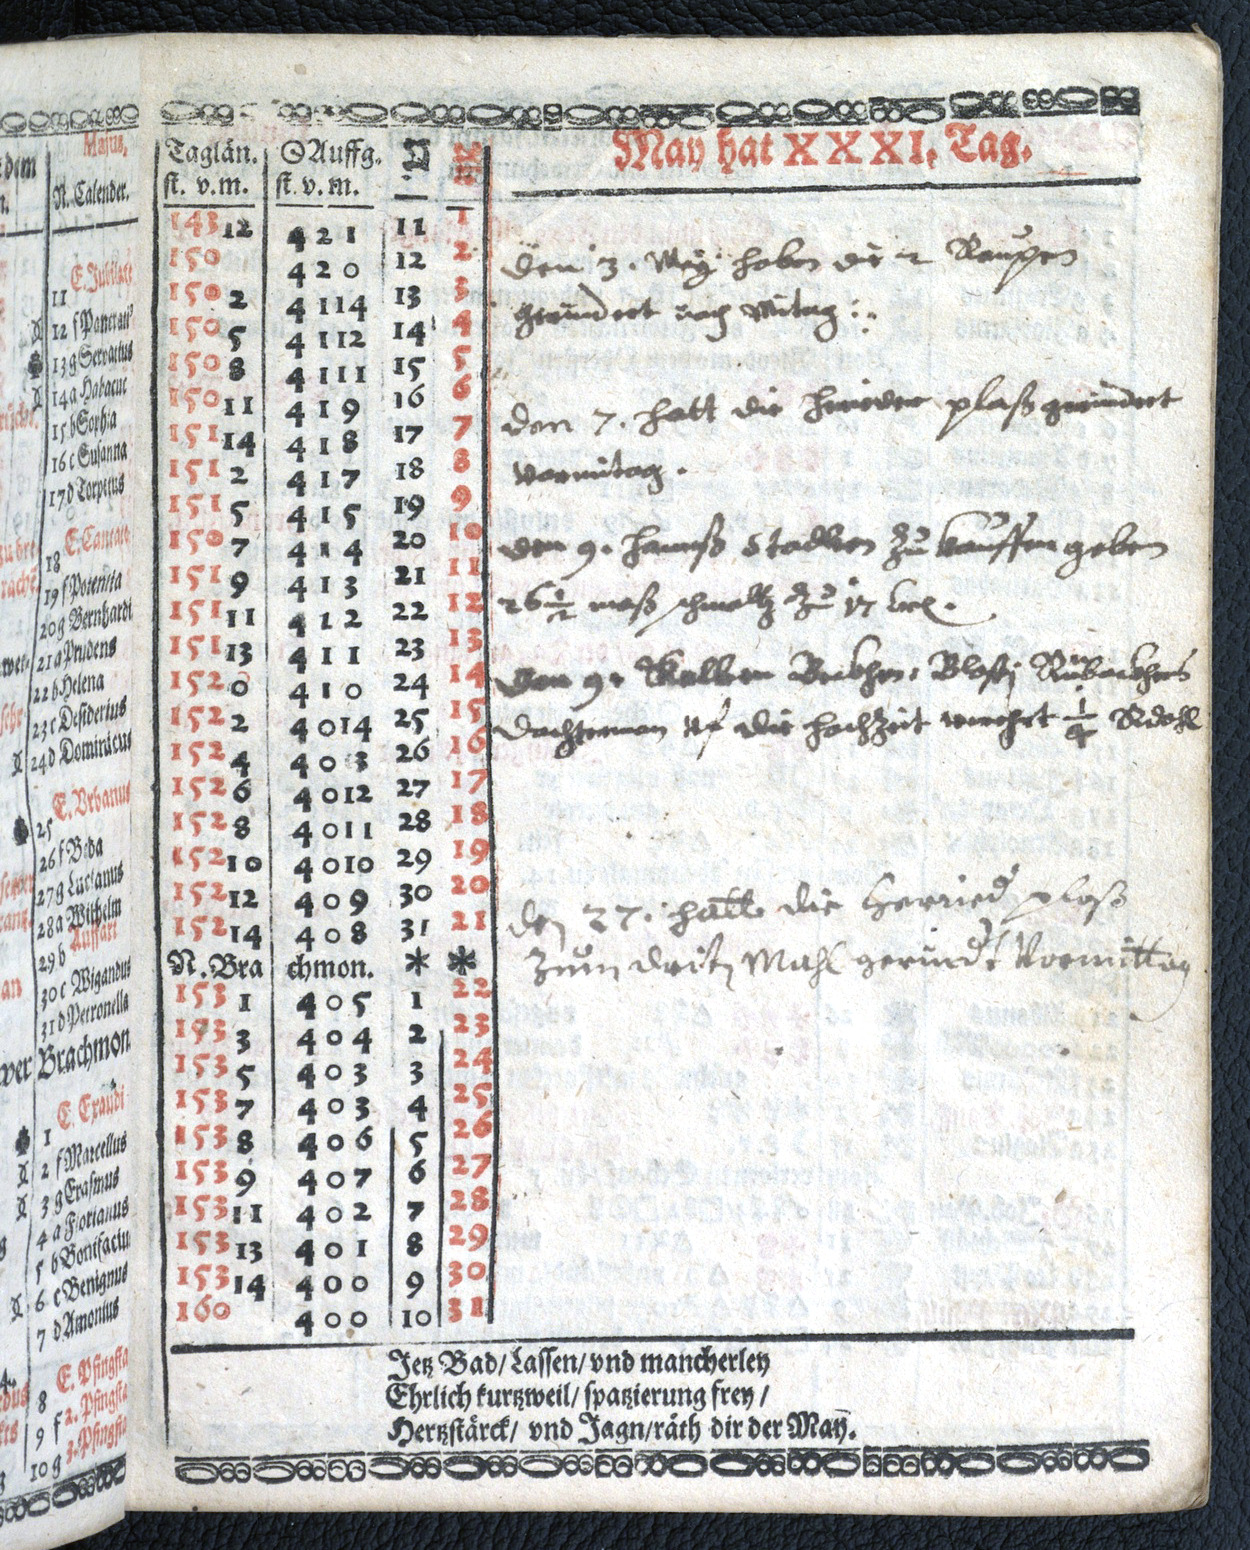 Majus,
N. Calender.
E. Jubilate
11
12 f Pancrati
13 g Servatius
14 a Habacuc
15 b Sophia
16 c Susanna
17 d Torpetus
E. Cantate
18
19 f Potentia
20 g Bernhardi
21 a Prudens
22 b Helena
23 c Desiderius
24 d Dominicus
E. Vrbanus
25
26 f Beda
27 g Lucianus
28 a Wilhelm
Auffart
29 b
30 c Wigandus
31 d Petronella
Brachmon
E. Exaudi
1
2 f Marcellus
3 g Erasmus
4 a Florianus
5 b Bonifaciu
6 c Benignus
7 d Amonius
E. Pfingsta
8
9 f 2. Pfingsta
10 g 3. Pfingsta
May hat XXXI. Tag.
Taglän. ☉Auffg.
st. v. m. st. v. m.
143 12 4 21 11 1
150 4 20 12 2
150 2 4 114 13 3
150 5 4 112 14 4
150 8 4 111 15 5
150 11 4 19 16 6
151 14 4 18 17 7
151 2 4 17 18 8
151 5 4 15 19 9
150 7 4 14 20 10
151 9 4 13 21 11
151 11 4 12 22 12
151 13 4 11 23 13
152 0 4 10 24 14
152 2 4 014 25 15
152 4 4 03 26 16
152 6 4 012 27 17
152 8 4 011 28 18
152 10 4 010 29 19
152 12 4 09 30 20
152 14 4 08 31 21
N. Brachmon. * *
153 1 4 05 1 22
193 3 4 04 2 23
153 5 4 03 3 24
153 7 4 03 4 25
153 8 4 06 5 26
153 9 4 07 6 27
153 11 4 02 7 28
153 13 4 01 8 29
153 14 4 00 9 30
160 4 00 10 31
Den 3. May haben die 2
gerindert nach Mitag
den 7. hatt die plaß gerindert
vormitag.
den 9. hannß Stadler zu kauffen geben
26 1/2 maß schmaltz zu 17
den 9.
dochterman uf die hochzeit verehrt 1/4
den 27. hatt die plaß
zum drit Mahl gerindt Vormittag
Jetz Bad/ Lassen/ vnd mancherley
Ehrlich kurtzweil/ spatzierung frey/
Hertzstärck/ vnd Jagn/ räth dir der May.